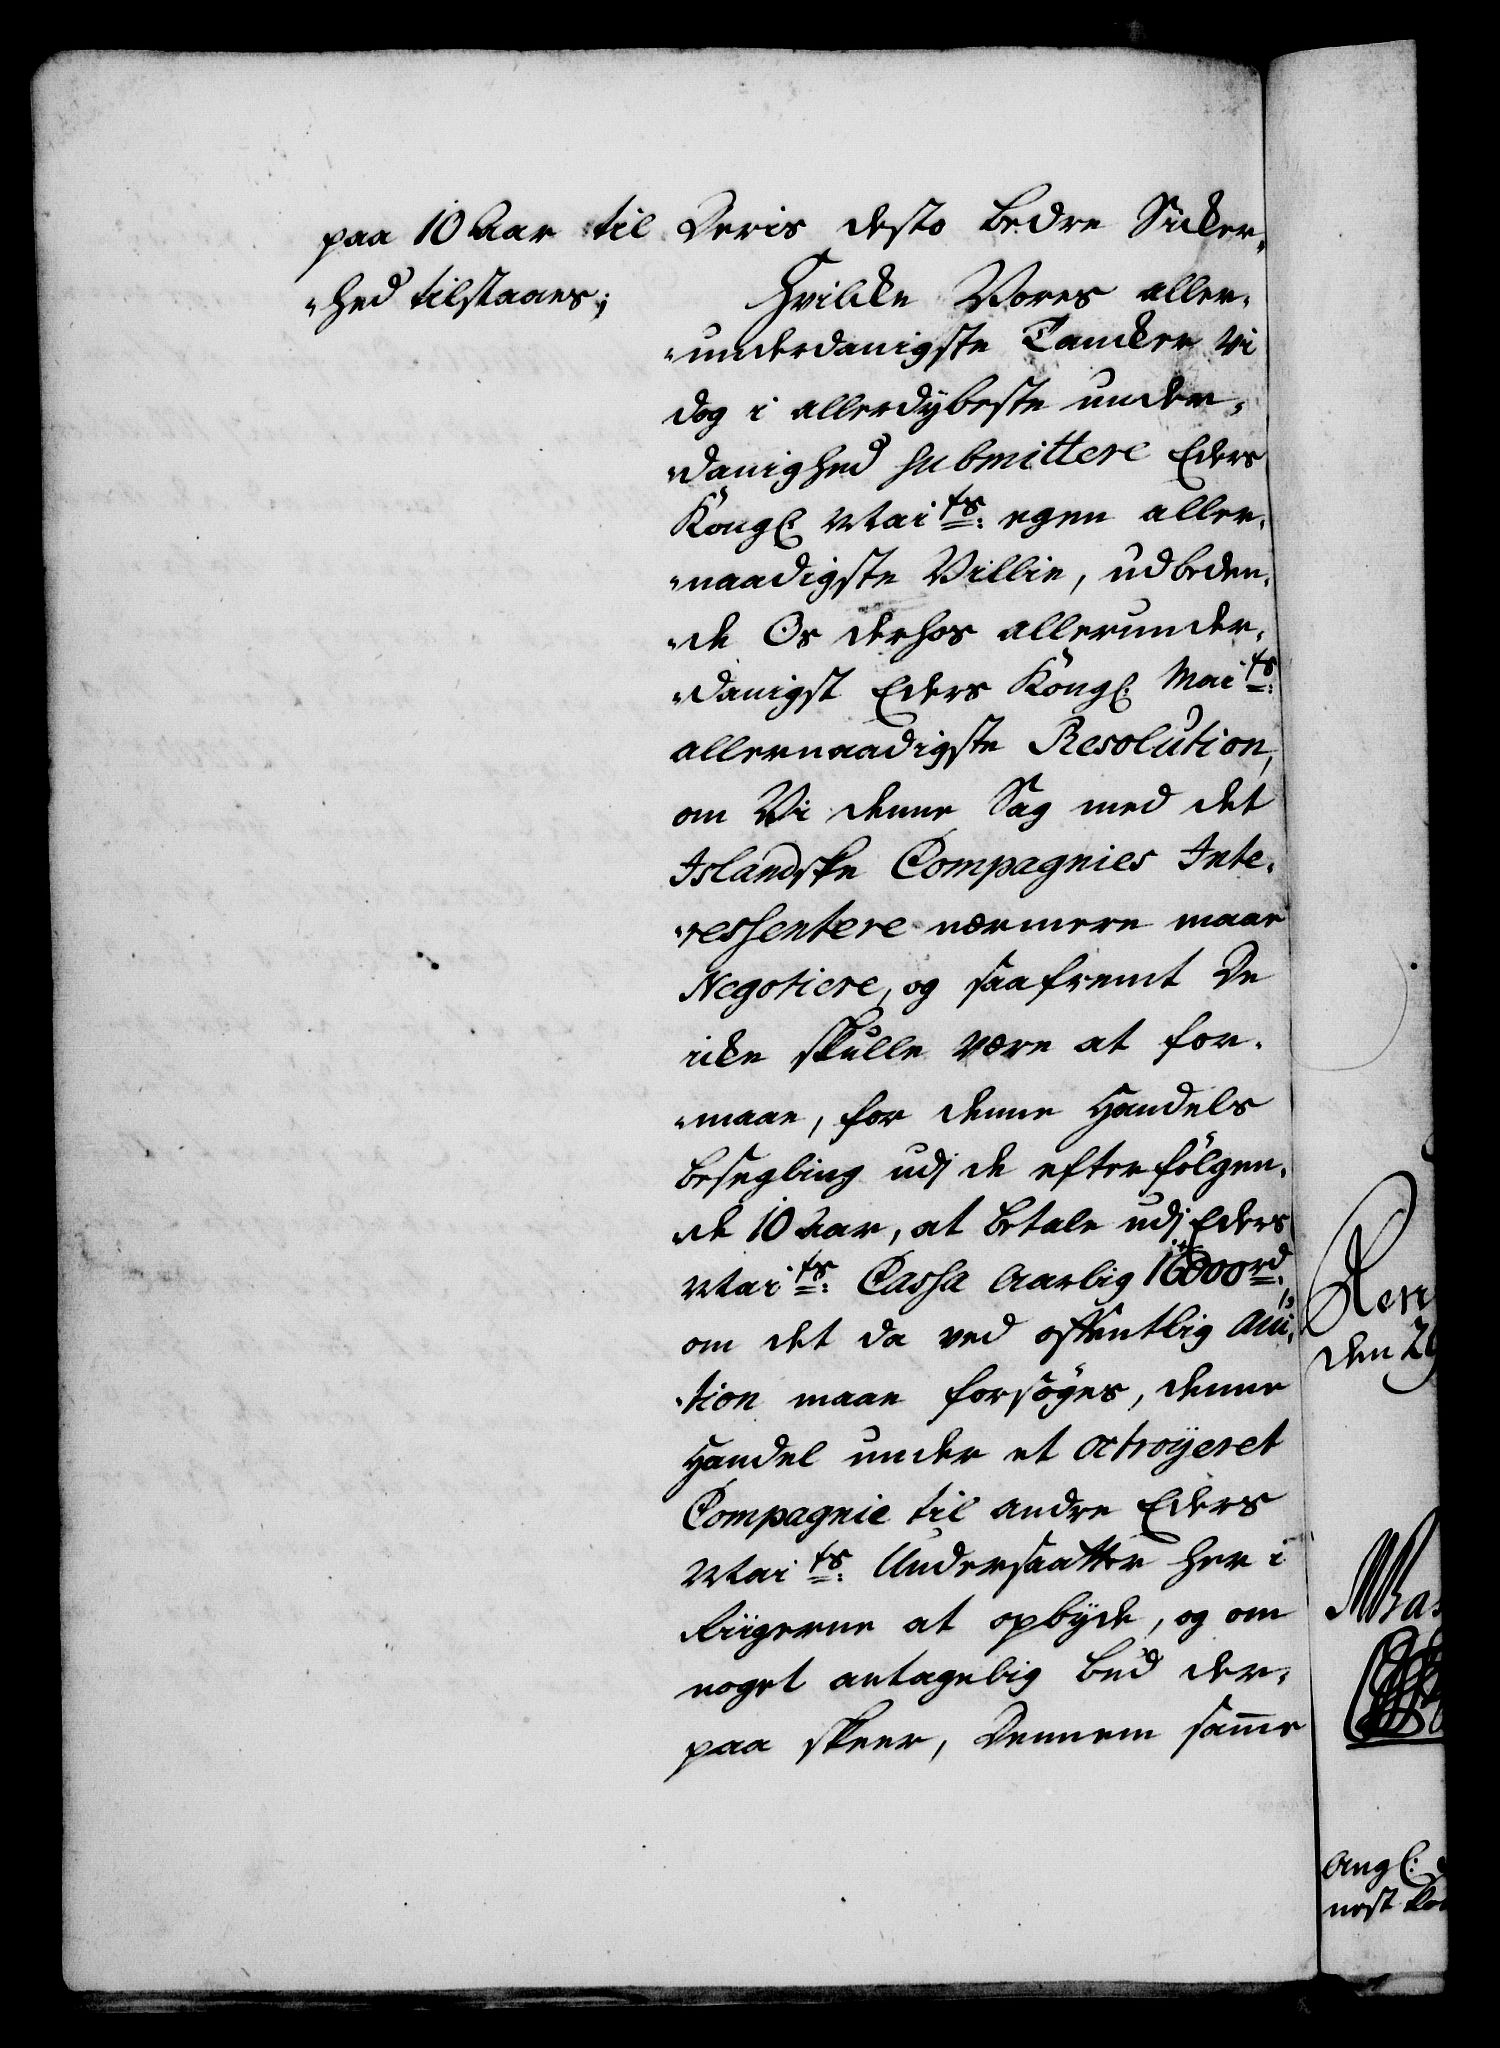 paa 10 Aar til Deris desto bedre Sicker-
-hed tilstaaes;
Hvilcke Vores aller-
-underdanigste Tancker vi
dog i allerdÿbeste under-
-danighed submittere Eders
Kongl: Maits: egen aller-
-naadigste Villie, udbeden-
-de Os derhos allerunder-
-danigst Eders Kongl: Maits:
allernaadigste Resolution,
om Vi denne Sag med det
Islandske Compagnies Inte-
-ressentere nærmere maae
Negotiere, og saafremt De
icke skulle være at for-
-maae, for denne Handels
besegling udj de efterfölgen-
-de 10 Aar, at betale udj Eders
Maits: Cassa Aarlig 16000 rd:
om det da ved offentlig Auc-
-tion maae forsöges, denne
Handel under et octroÿeret
Compagnie til andre Eders
Maits: Undersaatter her i
Riigerne at opbÿde, og om
noget antagelig bud der-
paa skeer, Dennem samme
den 29
Angl:
nest